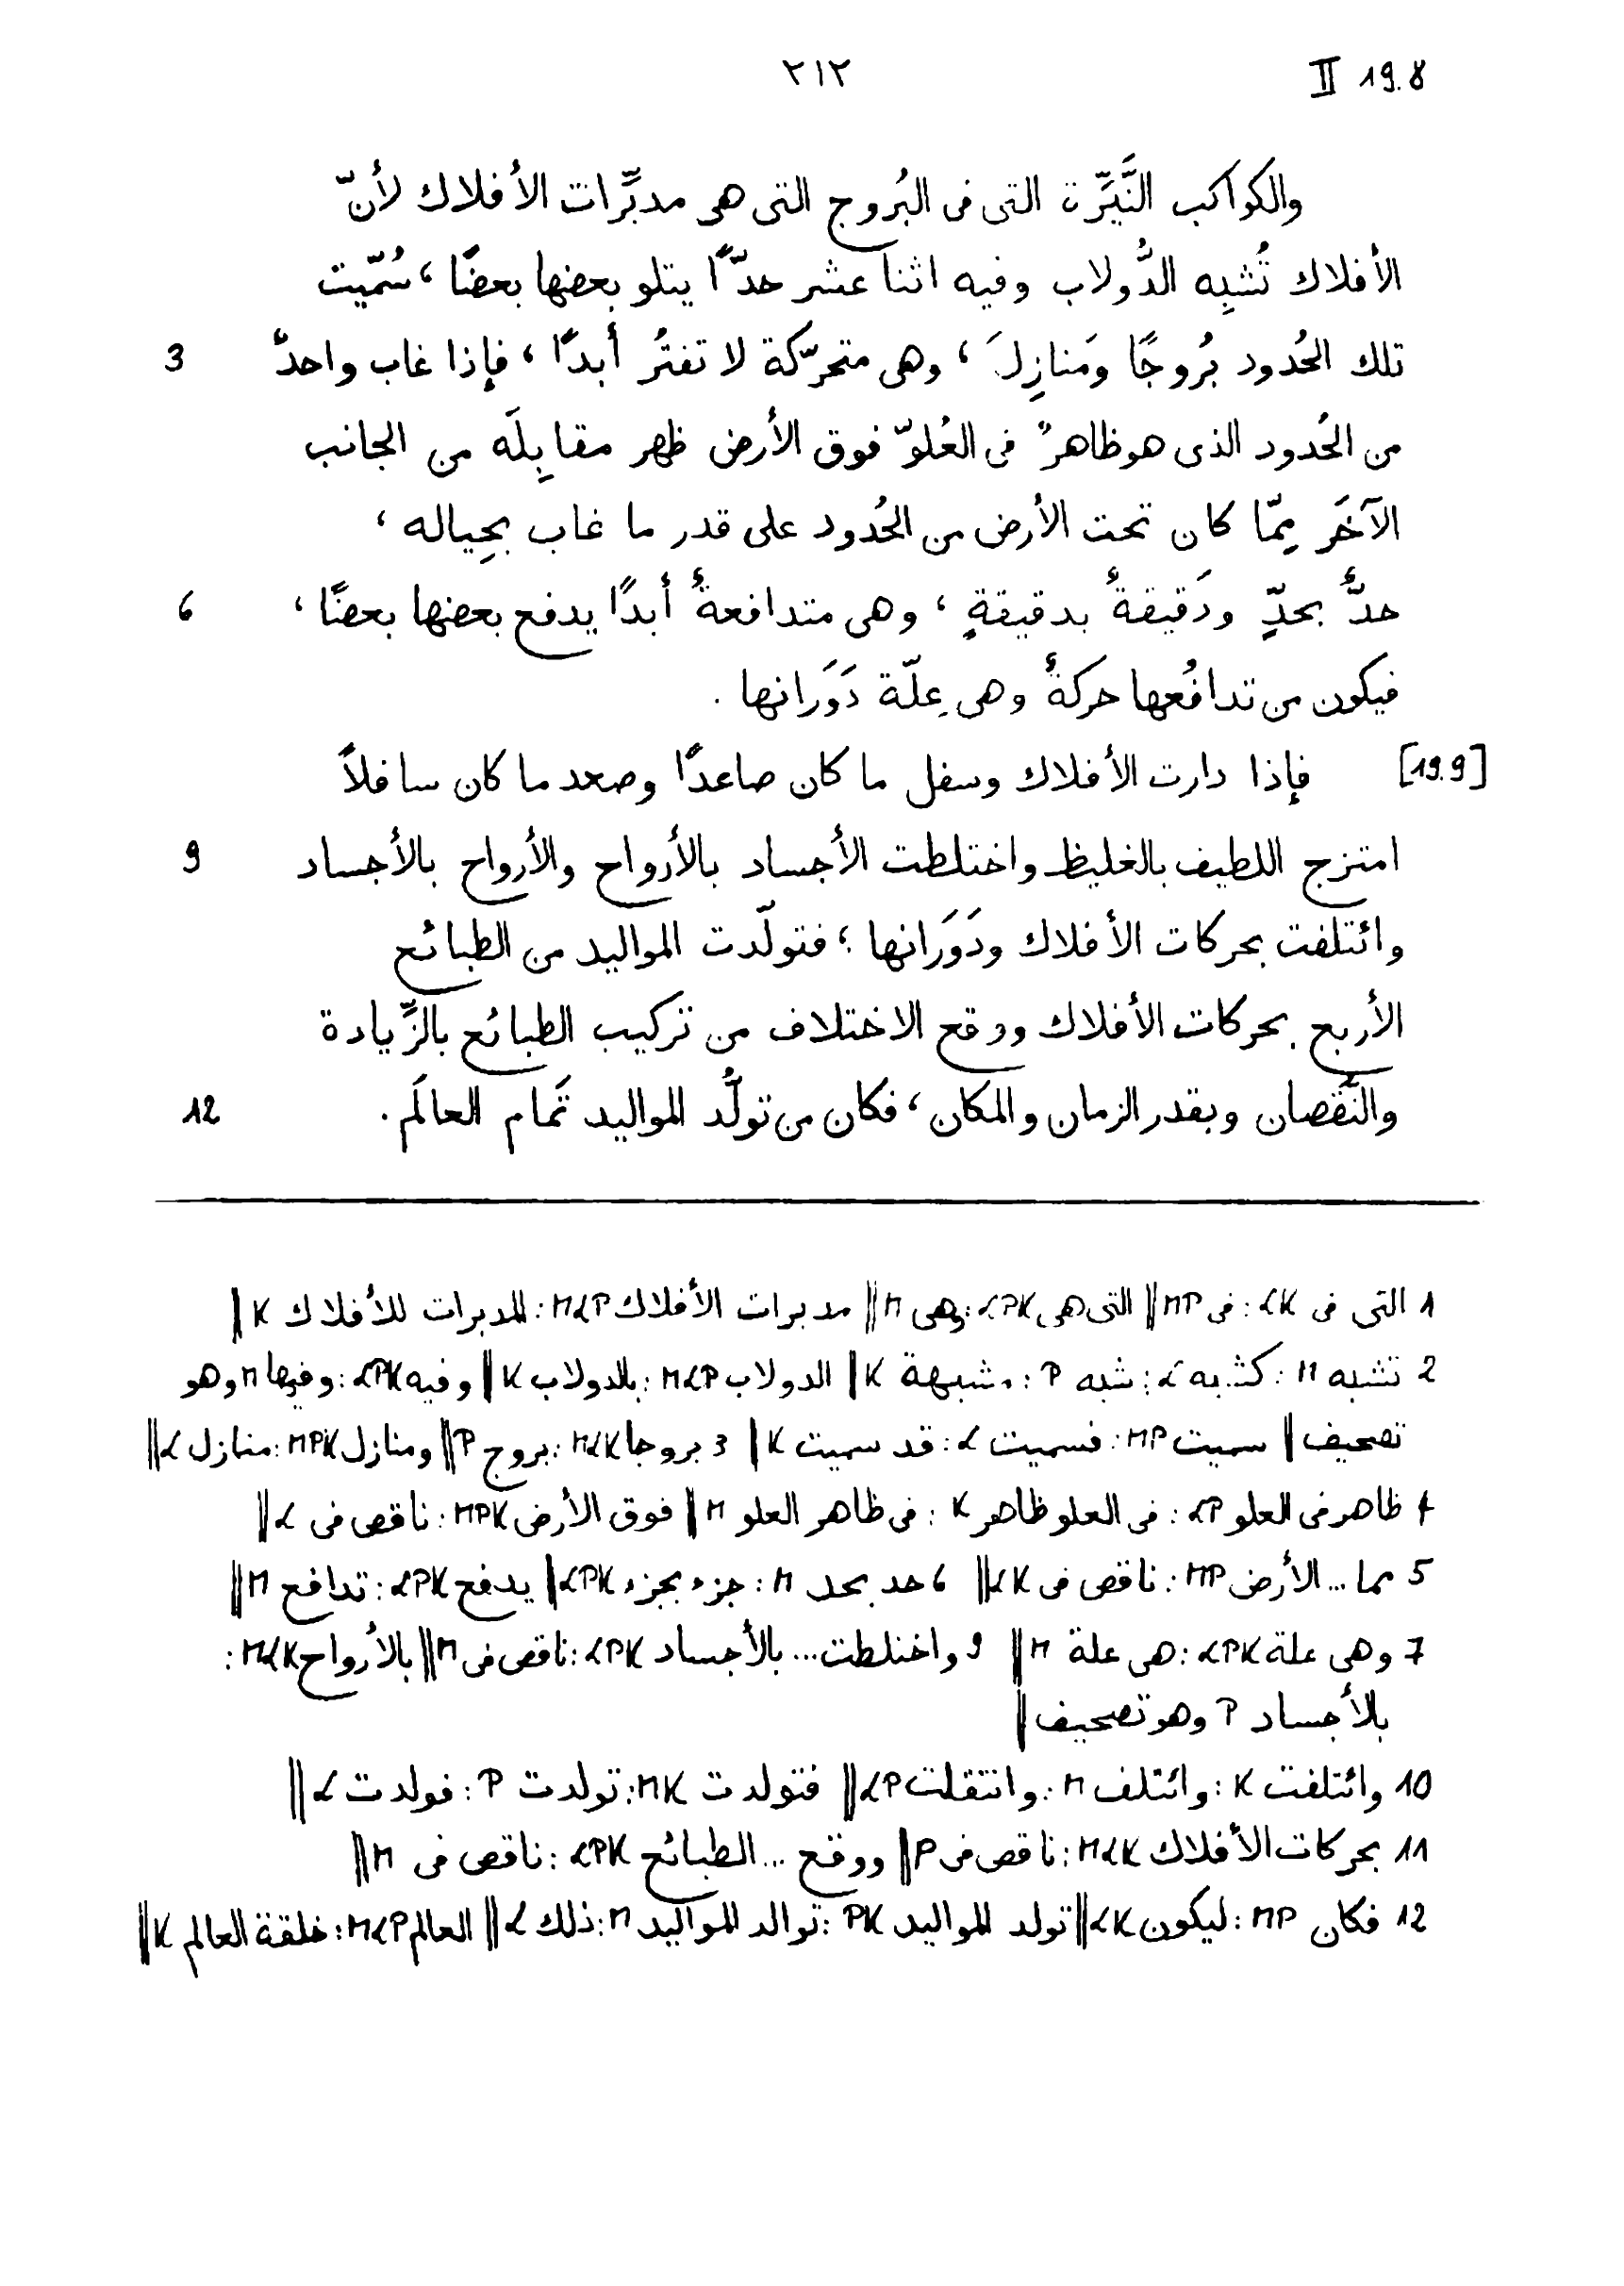 II 19.8
٢١٢
والكواكب النَّيِّرة التى فى البُروج التى هى مدبِّرات الأفلاك لأنّ
الأفلاك تُشبِه الدُّولاب وفيه اثنا عشر حدًّا يتلو بعضها بعضًا ، سُمّيت
تلك الحُدود بُروجًا ومَنازِلَ ، وهى متحرّكة لا تفتُر أبدًا ، فإذا غاب واحدٌ 3
من الحُدود الذى هو ظاهرٌ فى العُلوّ فوق الأرض ظهر مقابِلَه من الجانب
الآخَر مِمّا كان تحت الأرض من الحُدود على قدر ما غاب بحِياله ،
حدٌّ بحدٍّ ودَقيقةٌ بدقيقةٍ ، وهى متدافعةٌ أبدًا يدفع بعضها بعضًا ، 6
فيكون من تدافُعها حركةٌ وهى عِلّة دَوَرانها .
[19.9] فإذا دارت الأفلاك وسفل ما كان صاعدًا وصعد ما كان سافلاً
امتزج اللطيف بالغليظ واختلطت الأجساد بالأرواح والأرواح بالأجساد 9
وائتلفت بحركات الأفلاك ودَوَرانها ؛ فتولّدت المواليد من الطبائع
الأربع بحركات الأفلاك ووقع الاختلاف من تركيب الطبائع بالزِّيادة
والنُّقصان وبقدر الزمان والمكان ، فكان من تولُّد المواليد تَمام العالَم . 12
1 التى فى LK : فى MP || التى هى LPK : وهى M || مدبرات الأفلاك MLP : المدبرات للأفلاك K |
2 تشبه M : كشبه L : شبه P : مشبهة K || الدولاب MLP : بالدولاب K || وفيه LPK : وفيها M وهو
تصحيف || سميت MP : فسميت L : قد سميت K | 3 بروجا MLK : بروج P || ومنازل MPK : منازل L ||
4 ظاهر فى العلو LP : فى العلو ظاهر K : فى ظاهر العلو M || فوق الأرض MPK : ناقص فى L ||
5 مما ... الأرض MP : ناقص فى LK || 6 حد بحد M : جزء بجزء LPK || يدفع LPK : تدافع M ||
7 وهى علة LPK : هى علة M || 9 واختلطت ... بالأجساد LPK : ناقص فى M || بالأرواح MLK :
بالأجساد P وهو تصحيف ||
10 وائتلفت K : وائتلف M : وانتقلت LP || فتولدت MK : تولدت P : فولدت L ||
11 بحركات الأفلاك MLK : ناقص فى P || ووقع ... الطبائع LPK : ناقص فى M ||
12 فكان MP : ليكون LK || تولد المواليد PK : توالد المواليد M : ذلك L || العالم MLP : خلقة العالم K ||